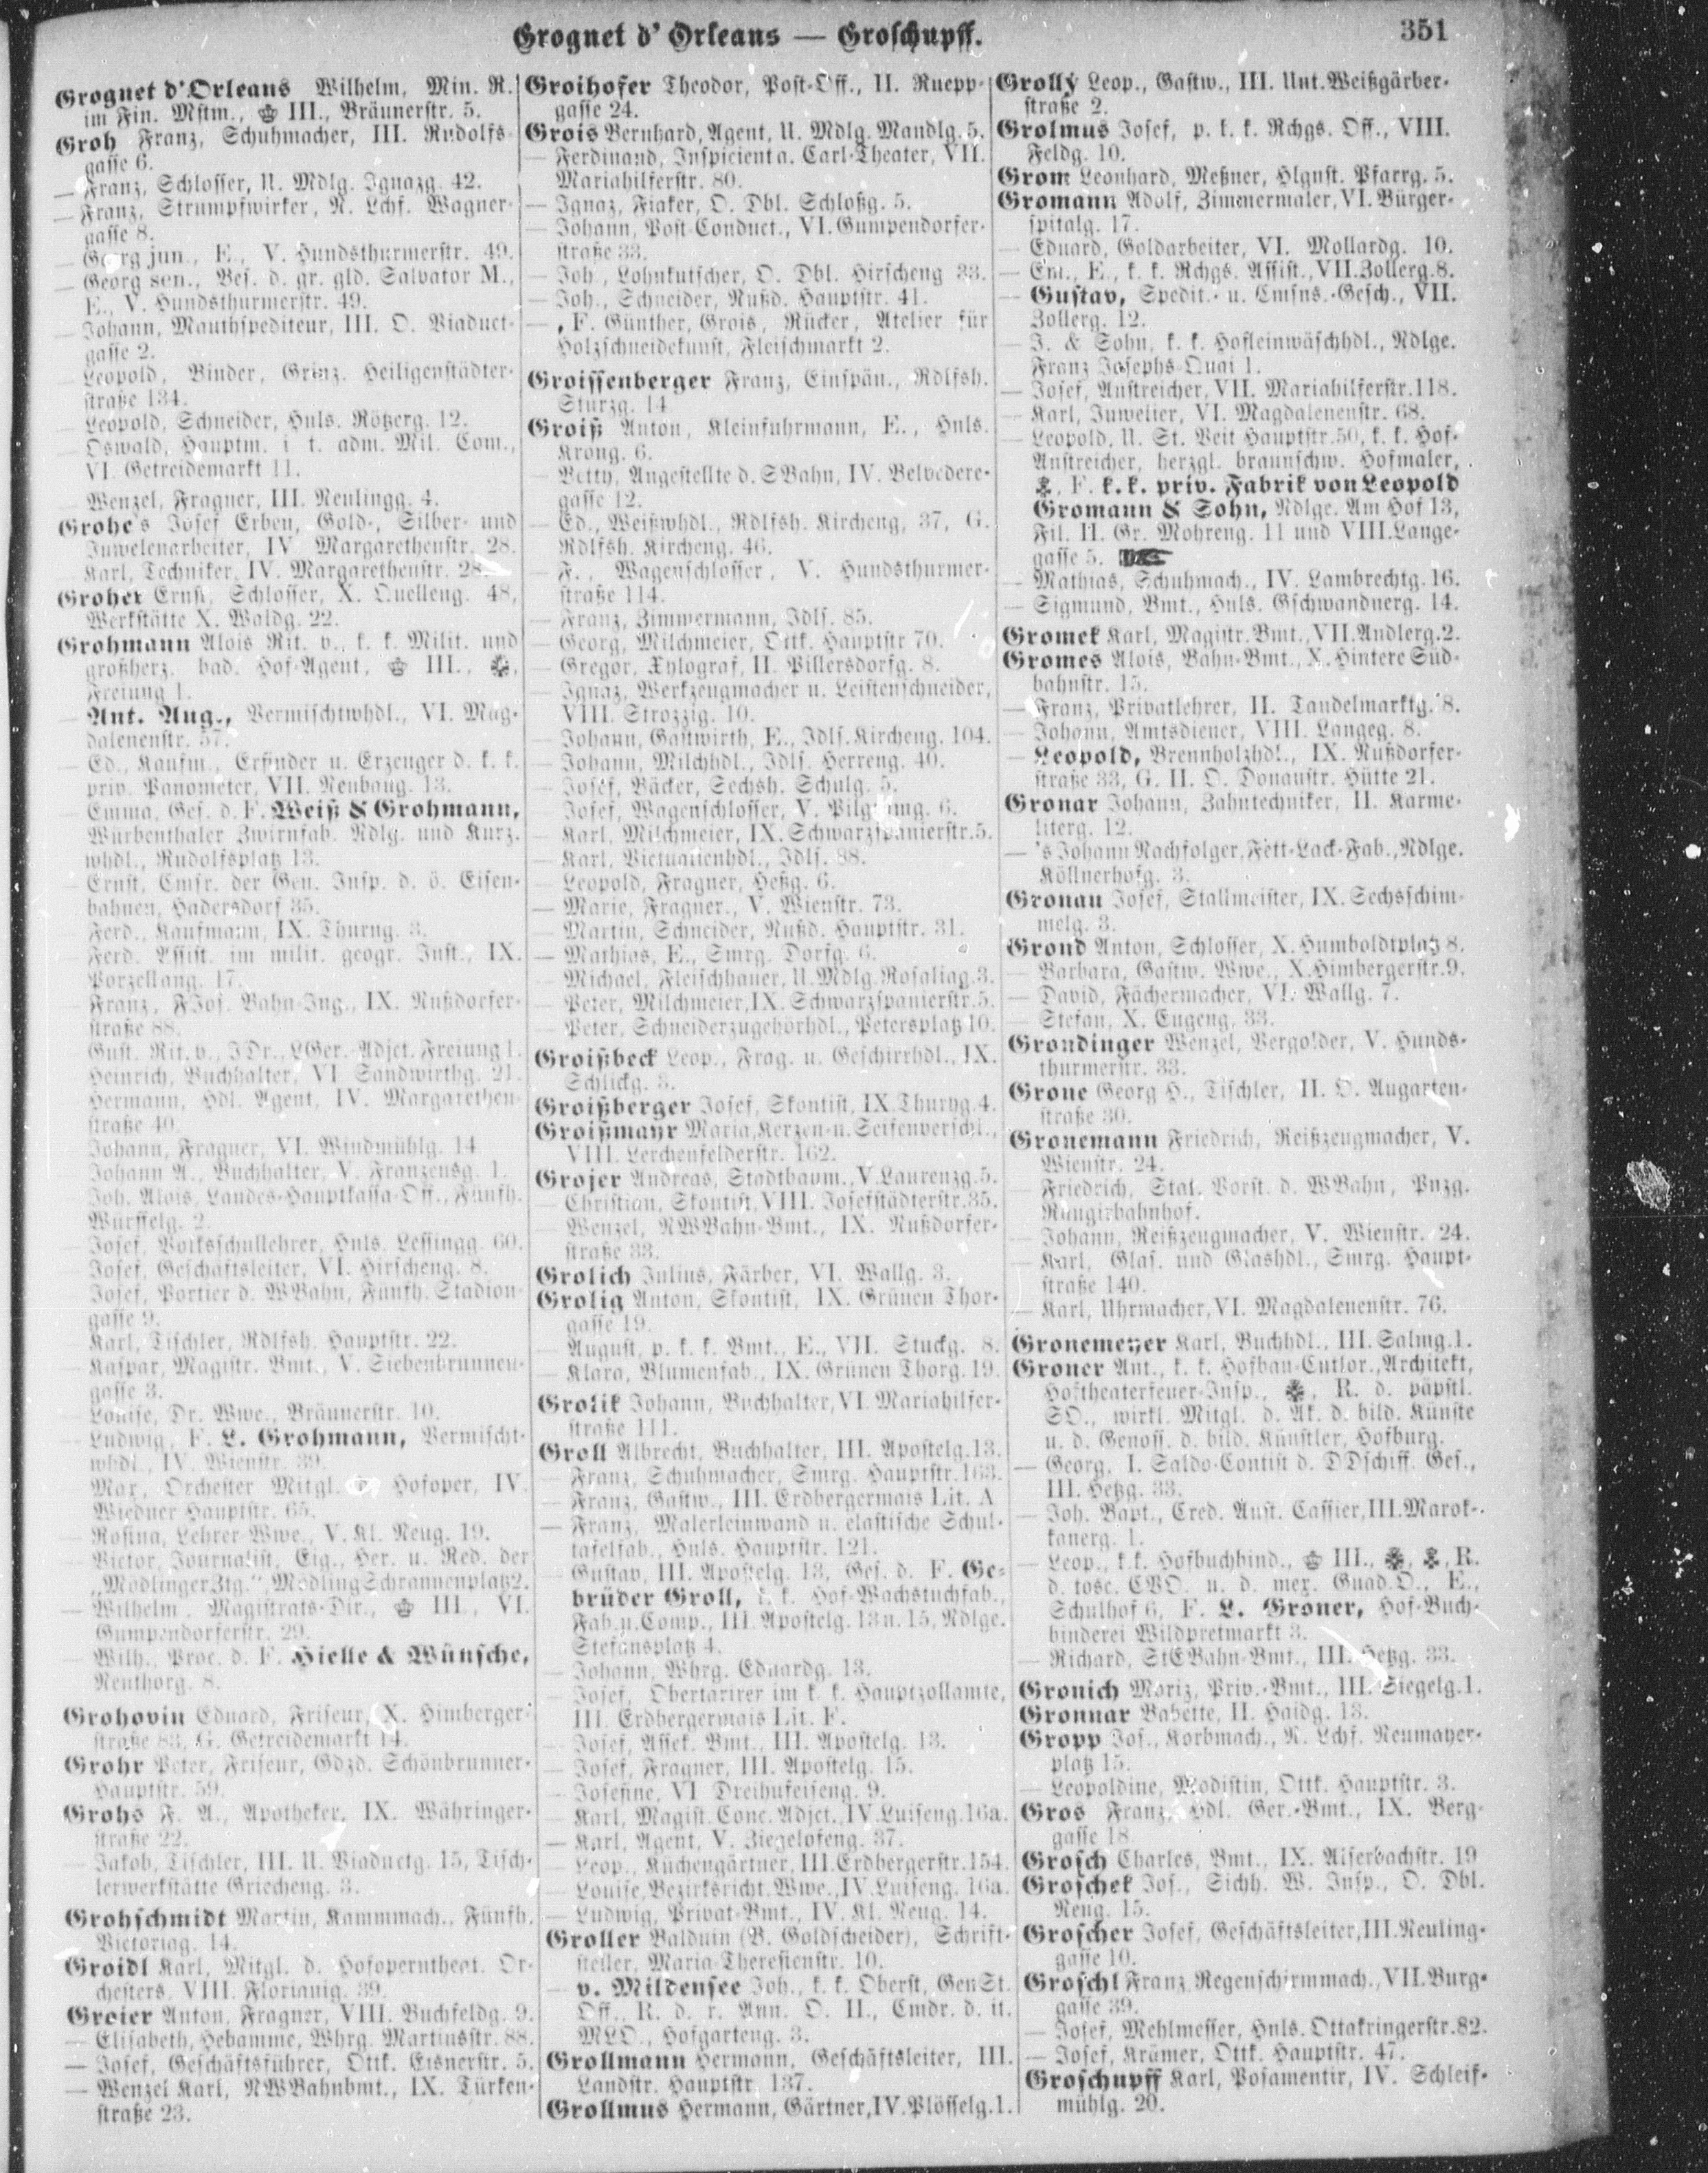 Grognet d'Orleans — Groschupff.
351
Grognet d'Orleans Wilhelm, Min. R.
im Fin. Mstm., III., Bräunerstr. 5.
Groh Franz, Schuhmacher, III. Rudolfs-
gasse 6.
— Franz, Schlosser, U. Mdlg. Ignazg. 42.
— Franz, Strumpfwirker, N. Lchf. Wagner-
gasse 8.
— Georg jun., E., V. Hundsthurmerstr. 49.
— Georg sen., Bes. d. gr. gld. Salvator M.,
E., V. Hundsthurmerstr. 49.
— Johann, Mauthspediteur, III. O. Viaduct-
gasse 2.
— Leopold, Binder, Grinz. Heiligenstädter-
straße 134.
— Leopold, Schneider, Hnls. Rötzerg. 12.
— Oswald, Hauptm. i t. adm. Mil. Com.,
VI. Getreidemarkt 11.
Wenzel, Fragner, III. Neulingg. 4.
Grohe's Josef Erben, Gold-, Silber- und
Juwelenarbeiter, IV. Margarethenstr. 28.
— Karl, Techniker, IV. Margarethenstr. 28.
Groher Ernst, Schlosser, X. Quelleng. 48,
Werkstätte X. Waldg. 22.
Grohmann Alois Rit. v., k. k. Milit. und
großherz. bad. Hof-Agent, III.,
Freiung 1.
— Ant. Aug., Vermischtwhdl., VI. Mag-
dalenenstr. 57.
— Ed., Kaufm., Erfinder u. Erzeuger d. k. k.
priv. Panometer, VII. Neubaug. 13.
— Emma, Ges. d. F. Weiß & Grohmann,
Würbenthaler Zwirnfab. Ndlg. und Kurz-
whdl., Rudolfsplatz 13.
— Ernst, Cmsr. der Gen. Insp. d. ö. Eisen-
bahnen, Hadersdorf 35.
Ferd., Kaufmann, IX. Thurng. 3.
Ferd. Assist. im milit. geogr. Inst., IX.
Porzellang. 17.
— Franz, FJos. Bahn-Ing., IX. Nußdorfer-
straße 88.
Gust. Rit. v., JDr., LGer.-Adjct. Freiung 1.
Heinrich, Buchhalter, VI. Sandwirthg. 21.
Hermann, Hdl. Agent, IV. Margarethen-
straße 40.
Johann, Fragner, VI. Windmühlg. 14
Johann A., Buchhalter, V. Franzensg. 1.
Joh. Alois, Landes-Hauptkassa-Off., Fünfh.
Würffelg. 2.
Josef, Volksschullehrer, Hnls. Lessingg. 60.
Josef, Geschäftsleiter, VI. Hirscheng. 8.
Josef, Portier d. WBahn, Fünfh. Stadion-
gasse 9.
Karl, Tischler, Rdlfsh. Hauptstr. 22.
Kaspar, Magistr. Bmt., V. Siebenbrunnen-
gasse 3.
— Louise, Dr. Wwe., Bräunerstr. 10.
— Ludwig, F. L. Grohmann, Vermischt-
whdl., IV. Wienstr. 39.
Max, Orchester Mitgl. d. Hofoper, IV.
Wiedner Hauptstr. 65.
— Rosina, Lehrer-Wwe., V. Kl. Neug. 19.
— Victor, Journalist, Eig., Her. u. Red. der
„Mödlinger Ztg.", Mödling Schrannenplatz 2.
— Wilhelm, Magistrats-Dir., III., VI.
Gumpendorferstr. 29.
— Wilh., Proc. d. F. Hielle & Wünsche,
Neuthorg. 8.
Grohovin Eduard, Friseur, X. Himberger-
straße 83, G. Getreidemarkt 14.
Grohr Peter, Friseur, Gdzd. Schönbrunner-
Hauptstr. 59.
Grohs F. A., Apotheker, IX. Währinger-
straße 22.
— Jakob, Tischler, III. U. Viaductg. 15, Tisch-
lerwerkstätte Griecheng. 3.
Grohschmidt Martin, Kammmach., Fünfh.
Victoriag. 14.
Groidl Karl, Mitgl. d. Hofoperntheat. Or-
chesters, VIII. Florianig. 39.
Groier Anton, Fragner, VIII. Buchfeldg. 9.
— Elisabeth, Hebamme, Whrg. Martinsstr. 88.
— Josef, Geschäftsführer, Ottk. Eisnerstr. 5.
— Wenzel Karl, NWBahnbmt., IX. Türken-
straße 23.
Groihofer Theodor, Post-Off., II. Ruepp-
gasse 24.
Grois Bernhard, Agent, U. Mdlg. Mandlg. 5.
— Ferdinand, Inspicient a. Carl-Theater, VII.
Mariahilferstr. 80.
— Ignaz, Fiaker, O. Dbl. Schloßg. 5.
— Johann, Post-Conduct., VI. Gumpendorfer-
straße 33.
— Joh., Lohnkutscher, O. Dbl. Hirscheng 33.
— Joh., Schneider, Nußd. Hauptstr. 41.
—, F. Günther, Grois, Rücker, Atelier für
Holzschneidekunst, Fleischmarkt 2.
Groissenberger Franz, Einspän., Rdlfsh.
Sturzg. 14
Groiß Anton, Kleinfuhrmann, E., Hnls.
Krong. 6.
— Betty, Angestellte d. SBahn, IV. Belvedere-
gasse 12.
— Ed., Weißwhdl., Rdlfsh. Kircheng, 37, G.
Rdlfsh. Kircheng. 46.
— F., Wagenschlosser, V. Hundsthurmer-
straße 114.
— Franz, Zimmermann, Jdls. 85.
— Georg, Milchmeier, Ottk. Hauptstr 70.
— Gregor, Xylograf, II. Pillersdorfg. 8.
— Ignaz, Werkzeugmacher u. Leistenschneider,
VIII. Strozzig. 10.
— Johann, Gastwirth, E., Jdls. Kircheng. 104.
— Johann, Milchhdl., Jdls. Herreng. 40.
— Josef, Bäcker, Sechsh. Schulg. 5.
Josef, Wagenschlosser, V. Pilgramg. 6.
— Karl, Milchmeier, IX. Schwarzspanierstr. 5.
— Karl, Victualienhdl., Jdls. 88.
— Leopold, Fragner, Heßg. 6.
— Marie, Fragner., V. Wienstr. 73.
— Martin, Schneider, Nußd. Hauptstr. 31.
— Mathias, E., Smrg. Dorfg. 6.
— Michael, Fleischhauer, U. Mdlg. Rosaliag. 3.
— Peter, Milchmeier, IX. Schwarzspanierstr. 5.
— Peter, Schneiderzugehörhdl., Petersplatz 10.
Groißbeck Leop., Frag. u. Geschirrhdl., IX.
Schlickg. 3.
Groißberger Josef, Skontist, IX. Thuryg. 4.
Groißmayr Maria, Kerzen- u. Seifenverschl.,
VIII. Lerchenfelderstr. 162.
Grojer Andreas, Stadtbaum., V. Laurenzg. 5.
— Christian, Skontist, VIII. Josefstädterstr. 35.
— Wenzel, NWBahn-Bmt., IX. Nußdorfer-
straße 33.
Grolich Julius, Färber, VI. Wallg. 3.
Grolig Anton, Skontist, IX. Grünen Thor-
gasse 19.
— August, p. k. k. Bmt., E., VII. Stuckg. 8.
— Klara, Blumenfab., IX. Grünen Thorg. 19.
Grolik Johann, Buchhalter, VI. Mariahilfer-
straße 111.
Groll Albrecht, Buchhalter, III. Apostelg. 13.
— Franz, Schuhmacher, Smrg. Hauptstr. 163.
— Franz, Gastw., III. Erdbergermais Lit. A
— Franz, Malerleinwand u. elastische Schul-
tafelfab., Hnls. Hauptstr. 121.
— Gustav, III. Apostelg. 13, Ges. d. F. Ge-
brüder Groll, k. k. Hof-Wachstuchfab.,
Fab. u. Comp., III. Apostelg. 13 u. 15, Ndlge.
Stefansplatz 4.
— Johann, Whrg. Eduardg. 13.
— Josef, Obertarirer im k. k. Hauptzollamte,
III. Erdbergermais Lit. F.
— Josef, Assek. Bmt., III. Apostelg. 13.
— Josef, Fragner, III. Apostelg. 15.
— Josefine, VI Dreihufeiseng. 9.
— Karl, Magist. Conc. Adjct., IV. Luiseng. 16a.
— Karl, Agent, V. Ziegelofeng. 37.
— Leop., Küchengärtner, III. Erdbergerstr. 154.
— Louise, Bezirksricht. Wwe., IV. Luiseng. 16a.
— Ludwig, Privat-Bmt., IV. Kl. Neug. 14.
Groller Balduin (B. Goldscheider), Schrift-
steller, Maria-Theresienstr. 10.
— v. Mildensee Joh., k. k. Oberst, GenSt.
Off., R. d. r. Ann. O. II., Cmdr. d. it.
MLO., Hofgarteng. 3.
Grollmann Hermann, Geschäftsleiter, III.
Landstr. Hauptstr. 137.
Grollmus Hermann, Gärtner, IV. Plösselg. 1.
Grolly Leop., Gastw., III. Unt. Weißgärber-
straße 2.
Grolmus Josef, p. k. k. Rchgs. Off., VIII.
Feldg. 10.
Grom Leonhard, Meßner, Hlgnst. Pfarrg. 5.
Gromann Adolf, Zimmermaler, VI. Bürger-
spitalg. 17.
— Eduard, Goldarbeiter, VI. Mollardg. 10.
— Em., E., k. k. Rchgs. Assist., VII. Zollerg. 8.
— Gustav, Spedit.- u. Cmsns.-Gesch., VII.
Zollerg. 12.
— J. & Sohn, k. k. Hofleinwäschhdl., Ndlge.
Franz Josephs-Quai 1.
— Josef, Anstreicher, VII. Mariahilferstr. 118.
— Karl, Juwelier, VI. Magdalenenstr. 68.
— Leopold, U. St. Veit Hauptstr. 50, k. k. Hof-
Anstreicher, herzgl. braunschw. Hofmaler,
F. k. k. priv. Fabrik von Leopold
Gromann & Sohn, Ndlge. Am Hof 13,
Fil. II. Gr. Mohreng. 11 und VIII. Lange-
gasse 5.
— Mathias, Schuhmach., IV. Lambrechtg. 16.
— Sigmund, Bmt., Hnls. Gschwandnerg. 14.
Gromek Karl, Magistr. Bmt., VII. Andlerg. 2.
Gromes Alois, Bahn-Bmt., X. Hintere Süd-
bahnstr. 15.
— Franz, Privatlehrer, II. Tandelmarktg. 8.
— Johann, Amtsdiener, VIII. Langeg. 8.
— Leopold, Brennholzhdl., IX. Nußdorfer-
straße 33, G. II. O. Donaustr. Hütte 21.
Gronar Johann, Zahntechniker, II. Karme-
literg. 12.
— 's Johann Nachfolger, Fett-Lack-Fab., Ndlge.
Köllnerhofg. 3.
Gronau Josef, Stallmeister, IX. Sechsschim-
melg. 3.
Grond Anton, Schlosser, X. Humboldtplatz 8.
— Barbara, Gastw. Wwe., X. Himbergerstr. 9.
— David, Fächermacher, VI. Wallg. 7.
— Stefan, X. Eugeng. 33.
Grondinger Wenzel, Vergolder, V. Hunds-
thurmerstr. 33.
Grone Georg H., Tischler, II. O. Augarten-
straße 30.
Gronemann Friedrich, Reißzeugmacher, V.
Wienstr. 24.
— Friedrich, Stat. Vorst. d. WBahn, Pnzg.
Rangirbahnhof.
— Johann, Reißzeugmacher, V. Wienstr. 24.
— Karl, Glas. und Glashdl., Smrg. Haupt-
straße 140.
— Karl, Uhrmacher, VI. Magdalenenstr. 76.
Gronemeyer Karl, Buchhdl., III. Salmg. 1.
Groner Ant., k. k. Hofbau-Cutlor., Architekt,
Hoftheaterfeuer-Insp., R. d. päpstl.
SO., wirkl. Mitgl. d. Ak. d. bild. Künste
u. d. Genoss. d. bild. Künstler, Hofburg.
— Georg, I. Saldo-Contist d. DDschiff. Ges.,
III. Hetzg. 33.
— Joh. Bapt., Cred. Anst. Cassier, III. Marok-
kanerg. 1.
— Leop., k. k. Hofbuchbind., III., R.
d. tosc. CVO. u. d. mex. Guad. O., E.,
Schulhof 6, F. L. Groner, Hof-Buch-
binderei Wildpretmarkt 3.
— Richard, StEBahn-Bmt., III. Hetzg. 33.
Gronich Moriz, Priv.-Bmt., III. Siegelg. 1.
Gronnar Babette, II. Haidg. 13.
Gropp Jos., Korbmach., N. Lchf. Neumayer-
platz 15.
— Leopoldine, Modistin, Ottk. Hauptstr. 3.
Gros Franz, Hdl. Ger.-Bmt., IX. Berg-
gasse 18
Grosch Charles, Bmt., IX. Alserbachstr. 19
Groschek Jos., Sichh. W. Insp., O. Dbl.
Neug. 15.
Groscher Josef, Geschäftsleiter, III. Neuling-
gasse 10.
Groschl Franz Regenschirmmach., VII. Burg-
gasse 39.
— Josef, Mehlmesser, Hnls. Ottakringerstr. 82.
— Josef, Krämer, Ottk. Hauptstr. 47.
Groschupff Karl, Posamentir, IV. Schleif-
mühlg. 20.